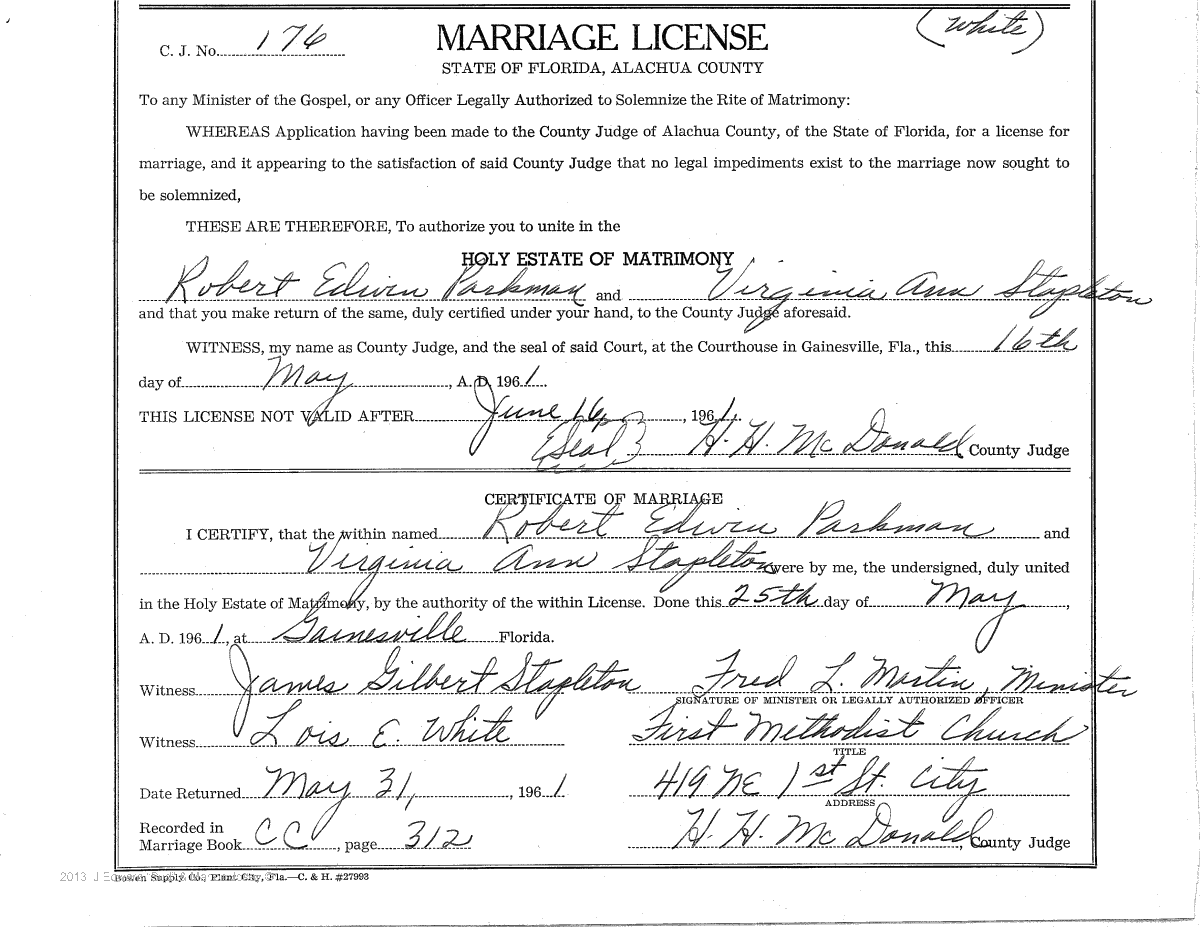 (White)
C. J. No. 176
MARRIAGE LICENSE
STATE OF FLORIDA, ALACHUA COUNTY
To any Minister of the Gospel, or any Officer Legally Authorized to Solemnize the Rite of Matrimony:
WHEREAS Application having been made to the County Judge of Alachua County, of the State of Florida, for a license for
marriage, and it appearing to the satisfaction of said County Judge that no legal impediments exist to the marriage now sought to
be solemnized,
THESE ARE THEREFORE, To authorize you to unite in the
HOLY ESTATE OF MATRIMONY
Robert Edwin Parkman and Virginia Ann Stapleton
and that you make return of the same, duly certified under your hand, to the County Judge aforesaid.
WITNESS, my name as County Judge, and the seal of said Court, at the Courthouse in Gainesville, Fla., this 16th
day of May, A. D. 1961.
THIS LICENSE NOT VALID AFTER June 16, 1961.
(Seal) H. H. McDonald County Judge
CERTIFICATE OF MARRIAGE
I CERTIFY, that the within named Robert Edwin Parkman and
Virginia Ann Stapleton were by me, the undersigned, duly united
in the Holy Estate of Matrimony, by the authority of the within License. Done this 25th day of May,
A. D. 1961, at Gainesville Florida.
Witness James Gilbert Stapleton Fred L. Martin, Minister
SIGNATURE OF MINISTER OR LEGALLY AUTHORIZED OFFICER
Witness Lois E. White First Methodist Church
TITLE
Date Returned May 31, 1961 419 NE 1st St. City
ADDRESS
Recorded in
Marriage Book CC, page 312 H. H. McDonald, County Judge
2013 J
Bowen Supply Co., Plant City, Fla.—C. & H. #27993